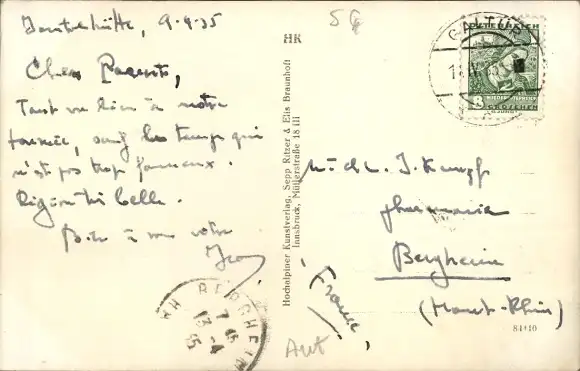 Jamtalhütte, 9-4-35
Chers Parents,
Tout va bien à notre
tournée, sauf le temps qui
n'est pas trop fameux.
Région très belle.
Bien à vous votre
Jean
HR
Hochalpiner Kunstverlag, Sepp Ritzer & Elis Braunhoff
Innsbruck, Müllerstraße 18 III
56
GALTÜR
ÖSTERREICH
8 GROSCHEN
J. Kempf
pharmacie
Bergheim
(Haut-Rhin)
France
Aut
84410
BERGHEIM
7 45
13-4
35